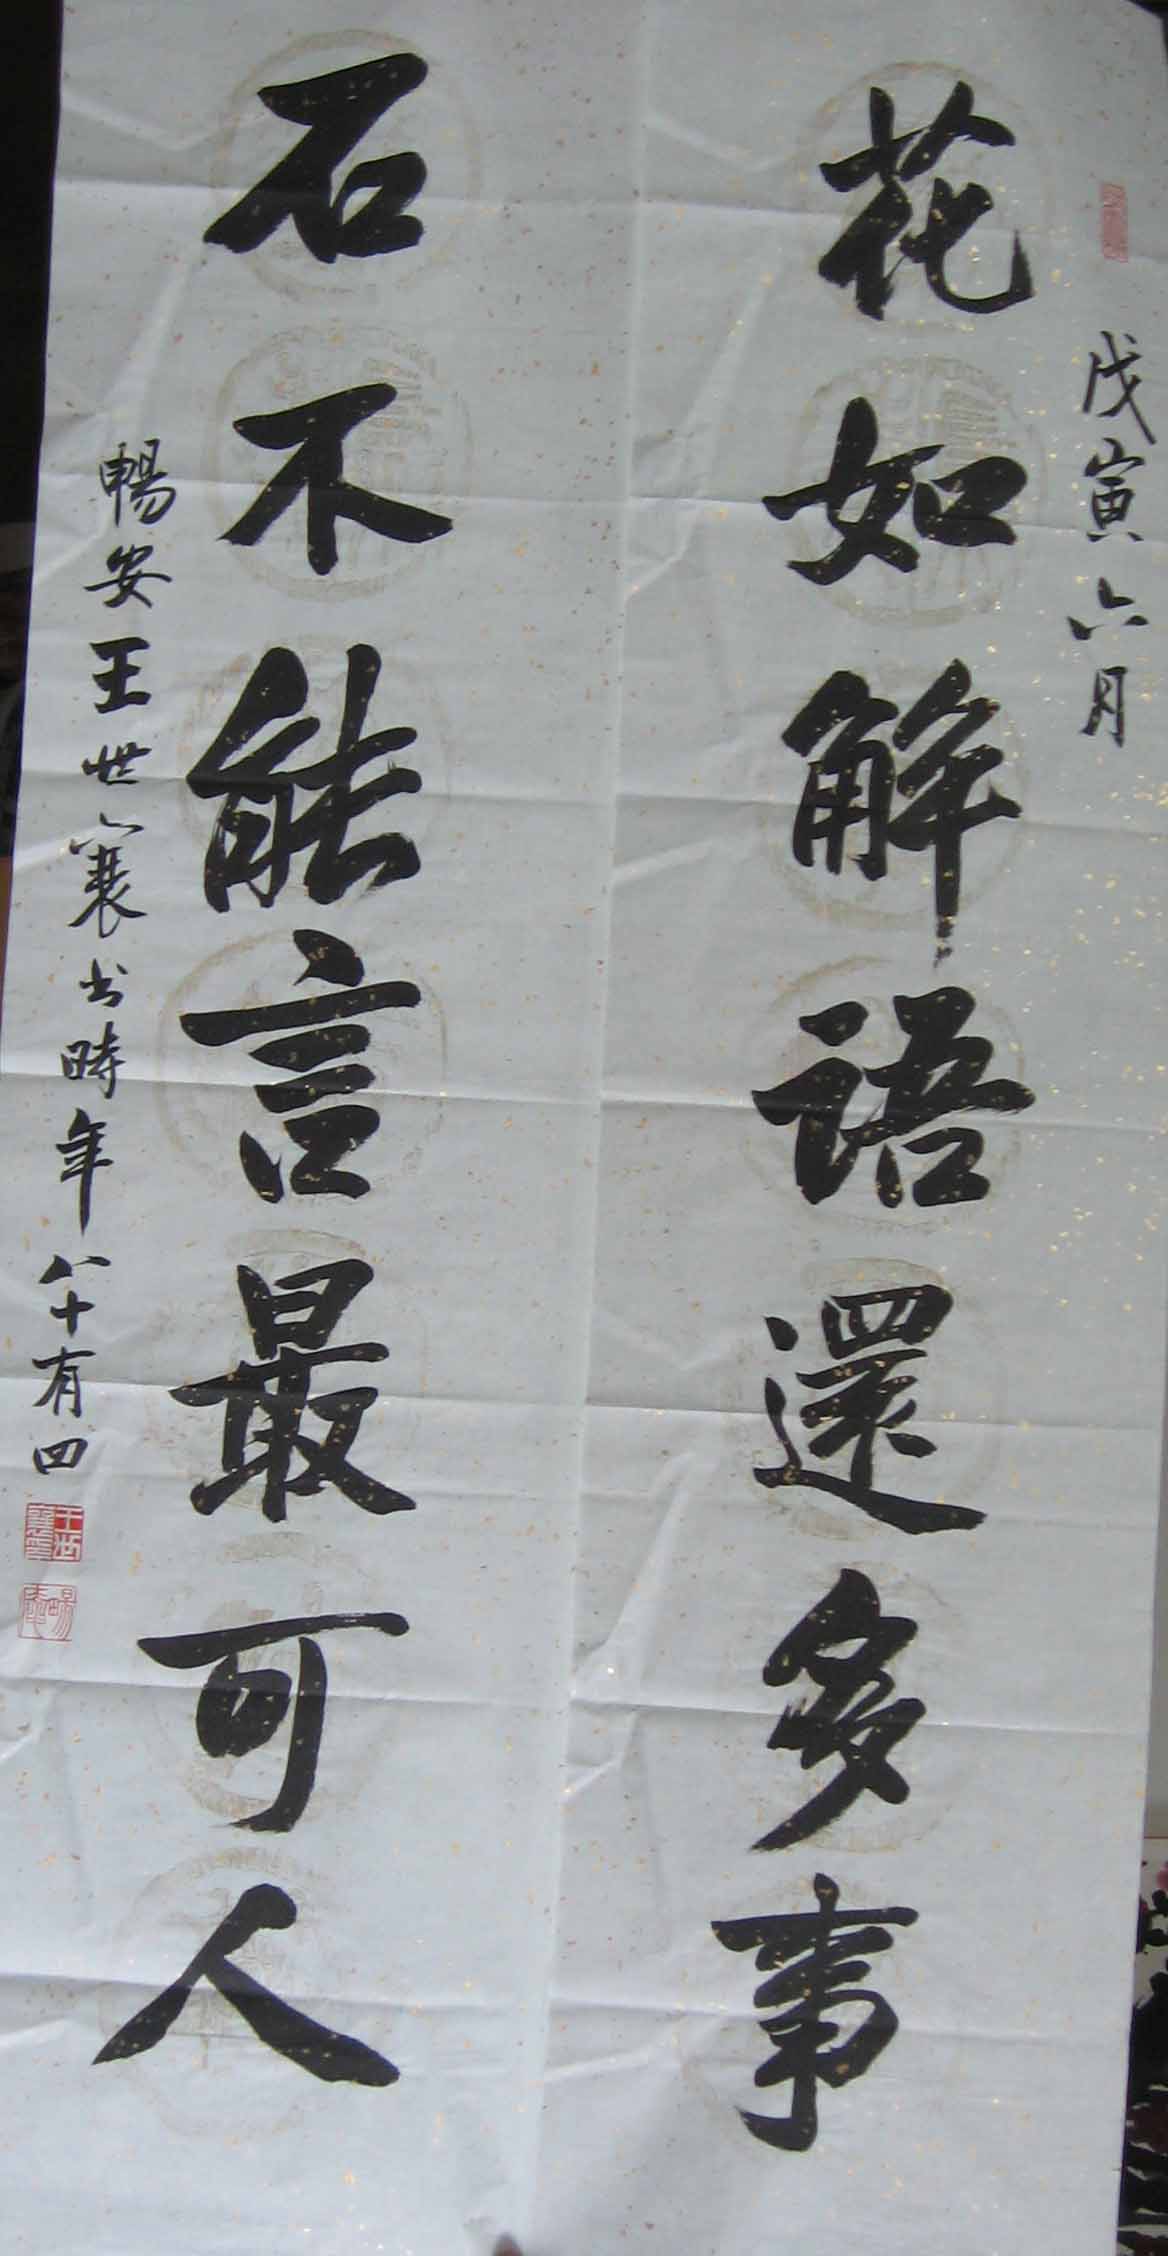 戊寅六月
花如解語還多事
石不能言最可人
暢安王世襄書時年八十有四
王世襄璽
暢安